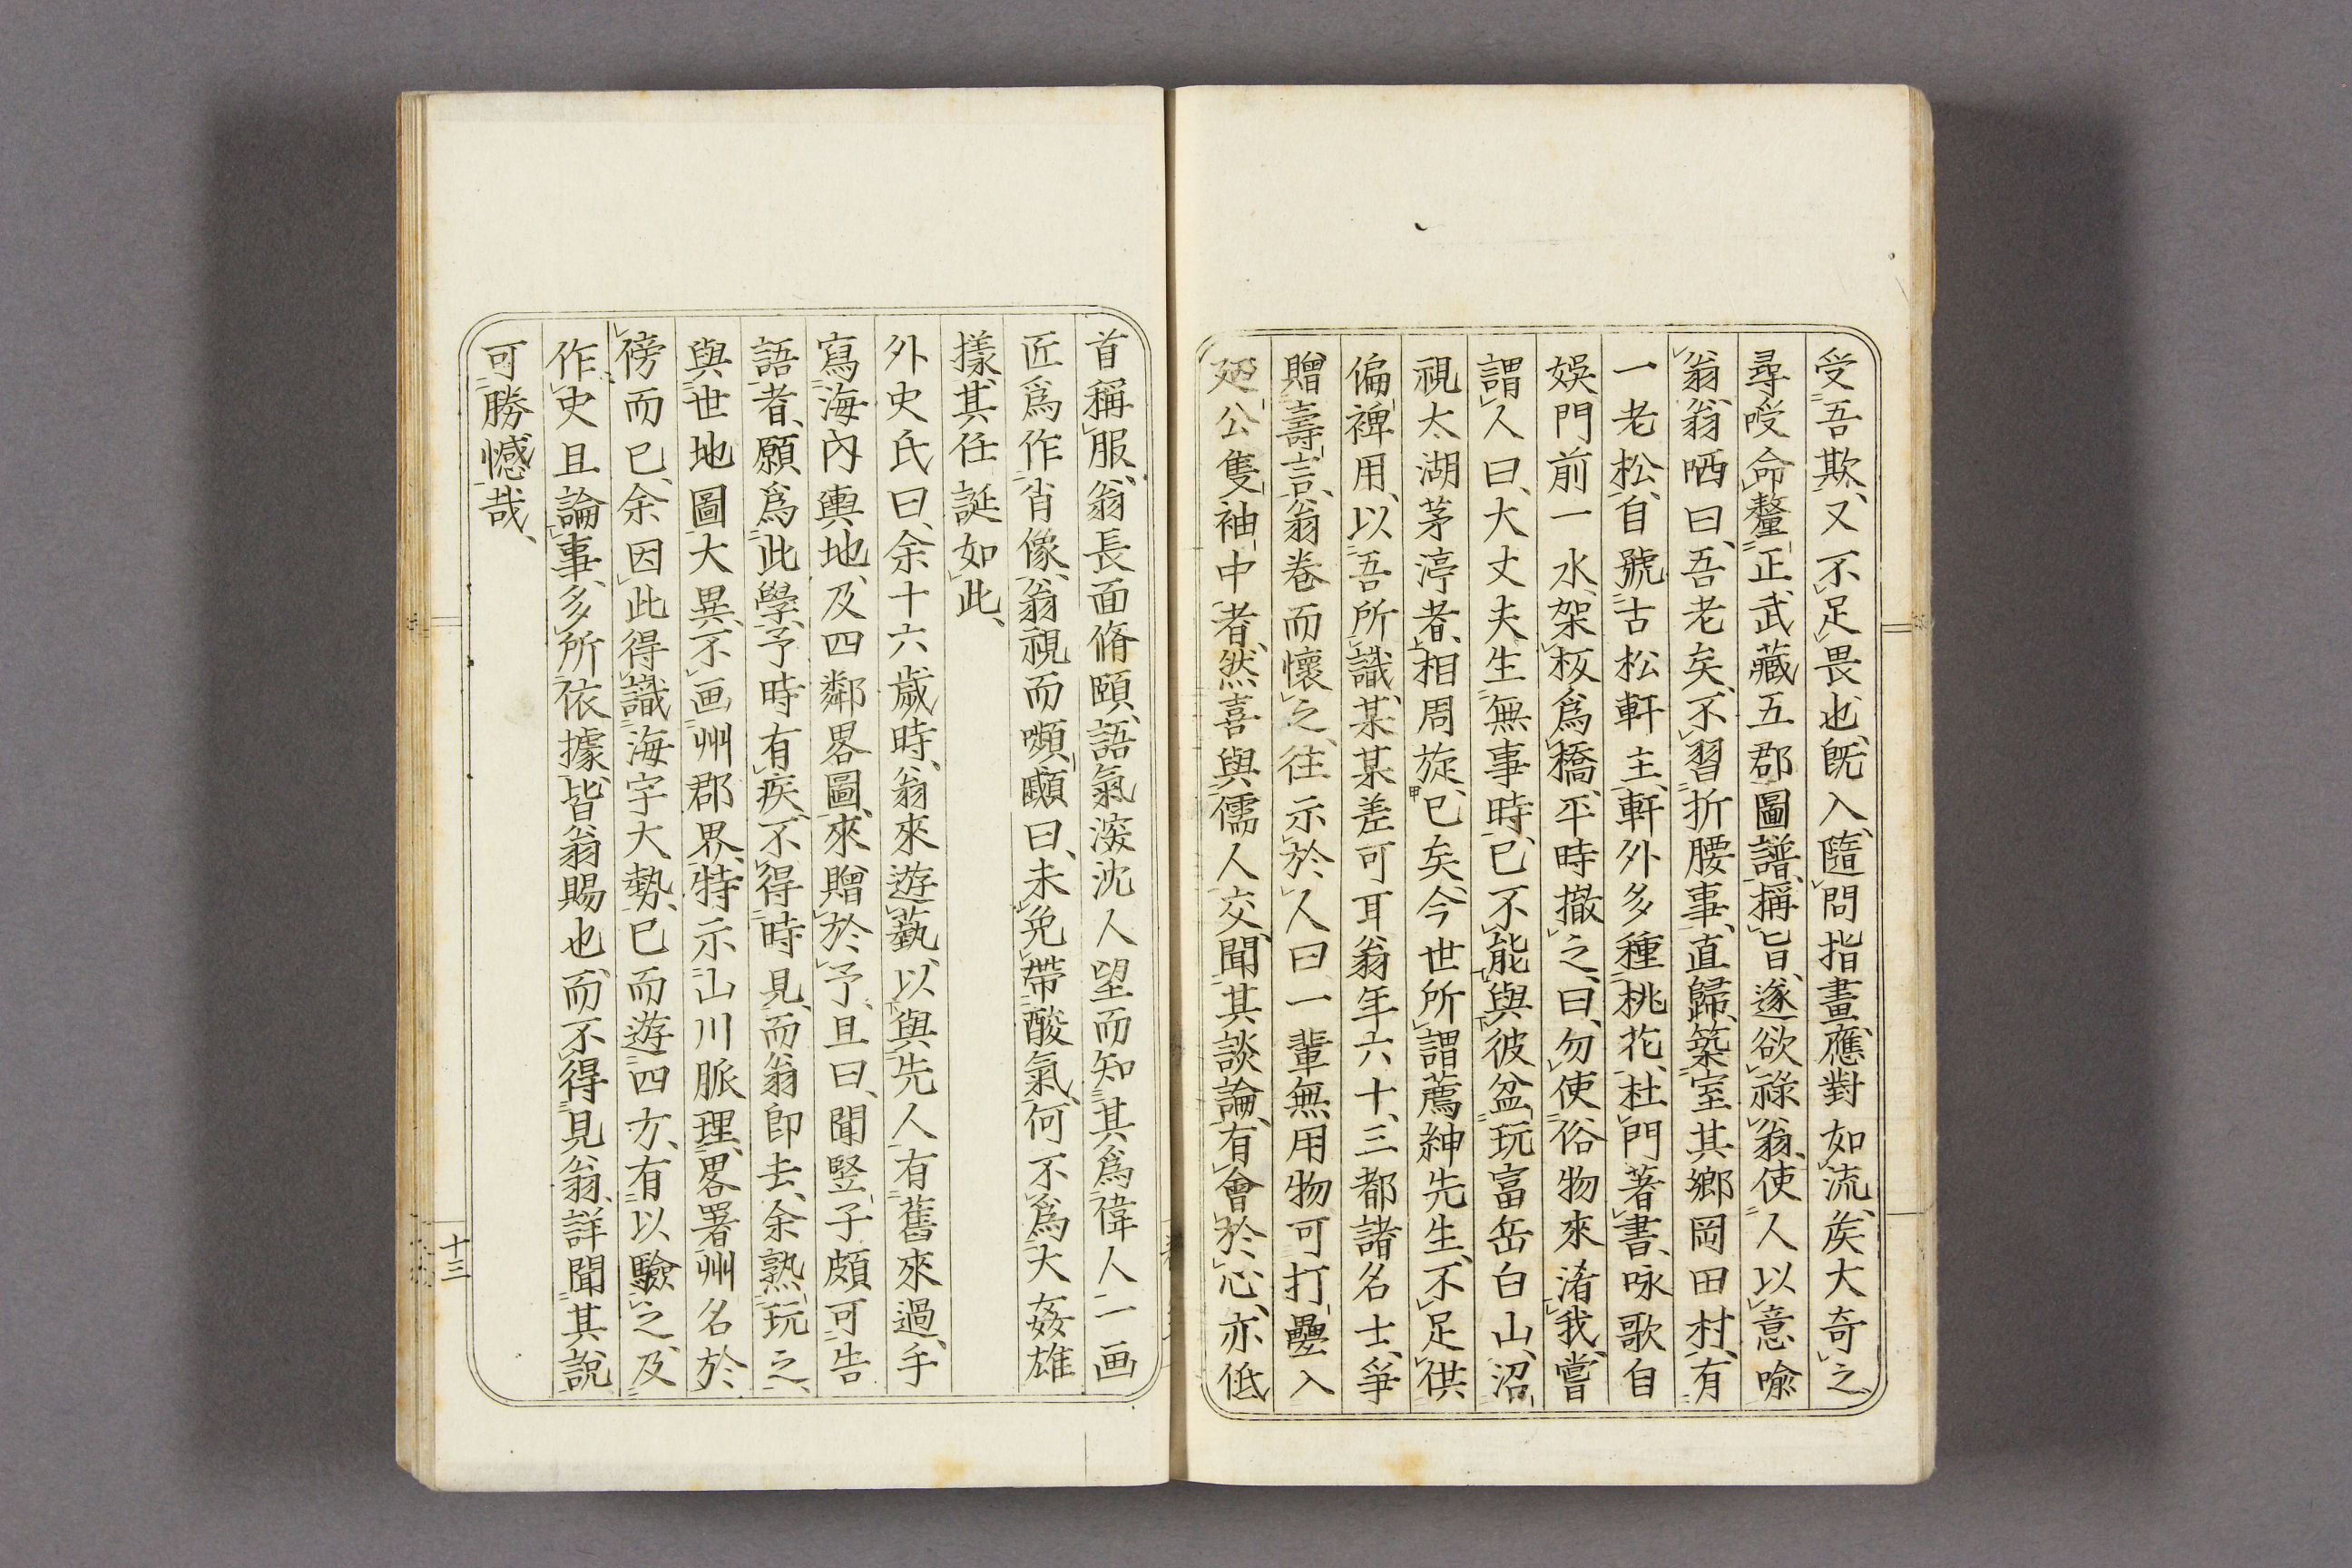 受吾欺、又不足畏也、既入、隨問指畫、應對如流、矦大奇之、
尋受命釐正武藏五郡圖譜、稱旨、遂欲祿翁、使人以意喩
翁、翁哂曰、吾老矣、不習折腰事、直歸、築室其鄉岡田村、有
一老松、自號古松軒主、軒外多種桃花、杜門著書、咏歌自
娛、門前一水、架板爲橋、平時撤之、曰、勿使俗物來淆我、嘗
謂人曰、大丈夫生無事時、已不能與彼盆玩富岳白山、沼
視太湖茅渟者、相周旋、已矣、今世所謂薦紳先生、不足供
偏裨用、以吾所識、某某差可耳、翁年六十、三都諸名士、爭
贈壽言、翁卷而懷之、往示於人曰、一輩無用物、可打疊入
廼公隻袖中者、然喜與儒人交、聞其談論、有會於心、亦低
首稱服、翁長面脩頤、語氣深沈、人望而知其爲偉人、一画
匠爲作肖像、翁視而嚬顣曰、未免帶酸氣、何不爲大姦雄
㨾、其任誕如此、
外史氏曰、余十六歲時、翁來遊藝、以與先人有舊來過、手
寫海內輿地、及四鄰畧圖、來贈於予、且曰、聞豎子頗可告
語者、願爲此學、予時有疾、不得時見、而翁卽去、余熟玩之、
與世地圖大異、不画州郡界、特示山川脈理、畧署州名於
傍而已、余因此得識海宇大勢、已而遊四方、有以驗之、及
作史且論事、多所依據、皆翁賜也、而不得見翁、詳聞其說
可勝憾哉、
十三